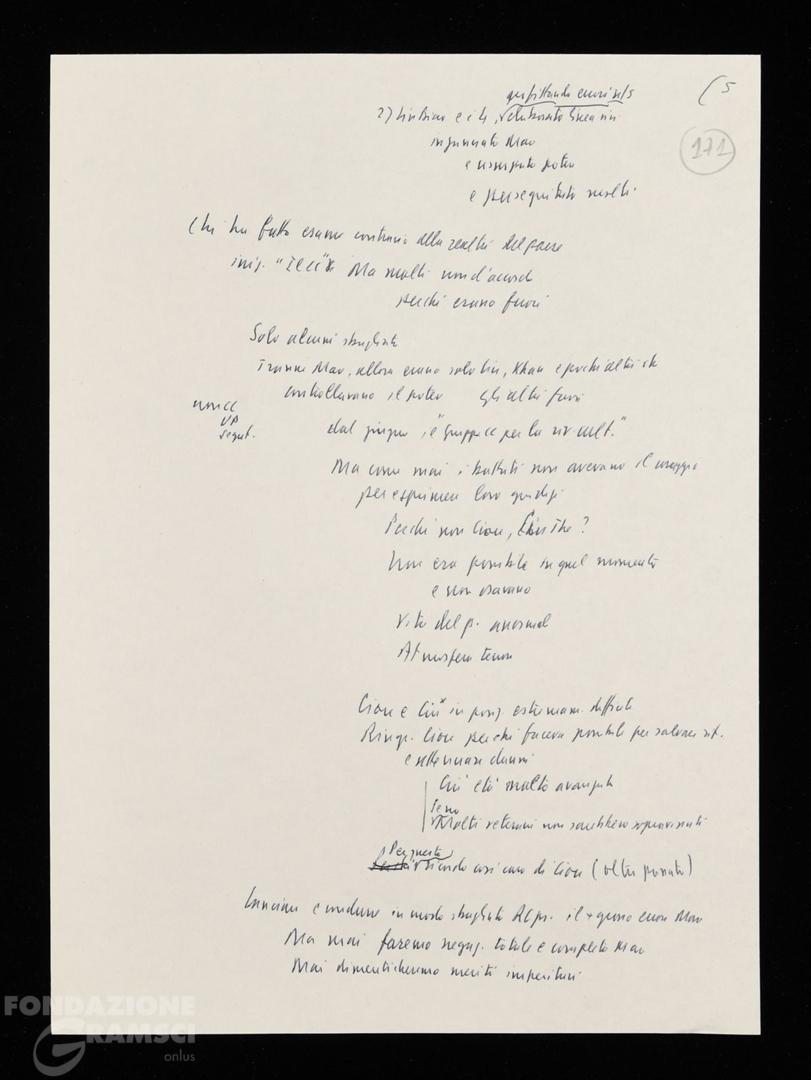 (5
171
approfittando errori s/s
2) Lin Biao e i 4, elaborato linea sin.
ingannato Mao
e usurpato potere
e perseguitato molti.
Chi ha fatto esame contrario alla realtà del paese
Ma molti non d'accordo
perché erano fuori
Solo alcuni sbagliato
Tranne Mao, allora erano solo Lin, Khan e pochi altri che
controllavano il potere gli altri fuori
non CC
UP
segret.
dal giugno, il "gruppo CC per la riv cult."
Ma come mai i battuti non avevano il coraggio
per esprimere loro giudizi
Perché non Ciou, Ciu The?
Non era possibile in quel momento
e non osavano
Vita del p. anormal
Atmosfera terrore
Ciou e Ciu in posiz. estremam. difficile
Ringr. Ciou perché faceva possibile per salvare sit.
e attenuare danni
Ciu età molto avanzata
Se no
Molti veterani non sarebbero sopravvissuti
Per questo
ricordo così caro di Ciou (oltre passato)
Lanciare e condurre in modo sbagliato RCpr. il + grosso errore Mao
Ma mai faremo negaz. totale e completa Mao
Mai dimenticheremo meriti imperituri
FONDAZIONE
GRAMSCI
onlus